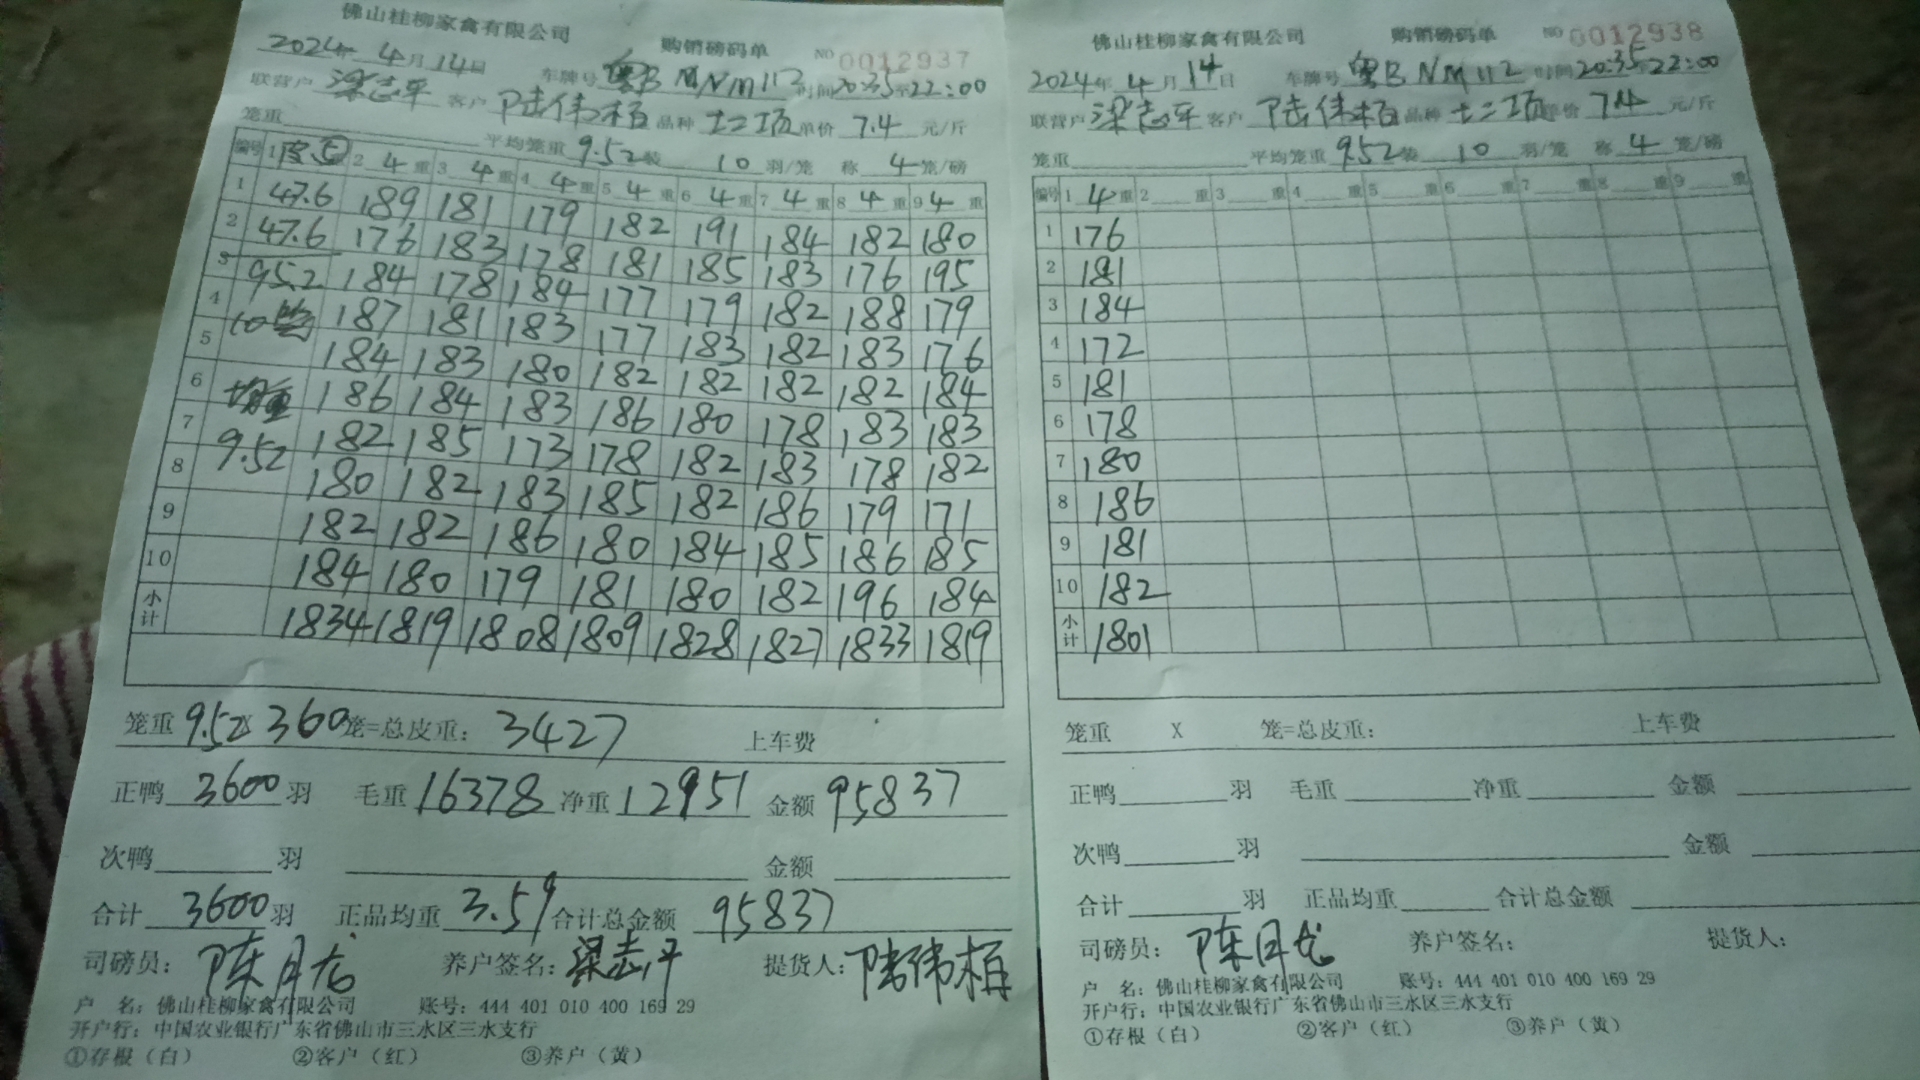 佛山桂柳家禽有限公司 购销磅码单 NO 0012937
2024年 4月 14日 车牌号 粤B NM112 时间 20:35至22:00
联营户 梁志平 客户 陆伟栢 品种 土二项 单价 7.4 元/斤
笼重 平均笼重 9.52 装 10 羽/笼 称 4 笼/磅
编号 1 皮 5 重 2 4 重 3 4 重 4 4 重 5 4 重 6 4 重 7 4 重 8 4 重 9 4 重
1 47.6 189 181 179 182 191 184 182 180
2 47.6 176 183 178 181 185 183 176 195
3 95.2 184 178 184 177 179 182 188 179
4 10 187 181 183 177 183 182 183 176
5 184 183 180 182 182 182 182 184
6 均重 186 184 183 186 180 178 183 183
7 9.52 182 185 173 178 182 183 178 182
8 180 182 183 185 182 186 179 171
9 182 182 186 180 184 185 186 185
10 184 180 179 181 180 182 196 184
小计 1834 1819 1808 1809 1828 1827 1833 1819
笼重 9.52 X 360 笼=总皮重: 3427 上车费
正鸭 3600 羽 毛重 16378 净重 12951 金额 95837
次鸭 羽 金额
合计 3600 羽 正品均重 3.59 合计总金额 95837
司磅员: 陈月龙 养户签名: 梁志平 提货人: 陆伟栢
户 名: 佛山桂柳家禽有限公司 账号: 444 401 010 400 169 29
开户行: 中国农业银行广东省佛山市三水区三水支行
①存根（白） ②客户（红） ③养户（黄）
佛山桂柳家禽有限公司 购销磅码单 NO 0012938
2024年 4月 14日 车牌号 粤B NM112 时间 20:35至22:00
联营户 梁志平 客户 陆伟栢 品种 土二项 单价 7.4 元/斤
笼重 平均笼重 9.52 装 10 羽/笼 称 4 笼/磅
编号 1 4 重 2 重 3 重 4 重 5 重 6 重 7 重 8 重 9 重
1 176
2 181
3 184
4 172
5 181
6 178
7 180
8 186
9 181
10 182
小计 1801
笼重 X 笼=总皮重: 上车费
正鸭 羽 毛重 净重 金额
次鸭 羽 金额
合计 羽 正品均重 合计总金额
司磅员: 陈月龙 养户签名: 提货人:
户 名: 佛山桂柳家禽有限公司 账号: 444 401 010 400 169 29
开户行: 中国农业银行广东省佛山市三水区三水支行
①存根（白） ②客户（红） ③养户（黄）